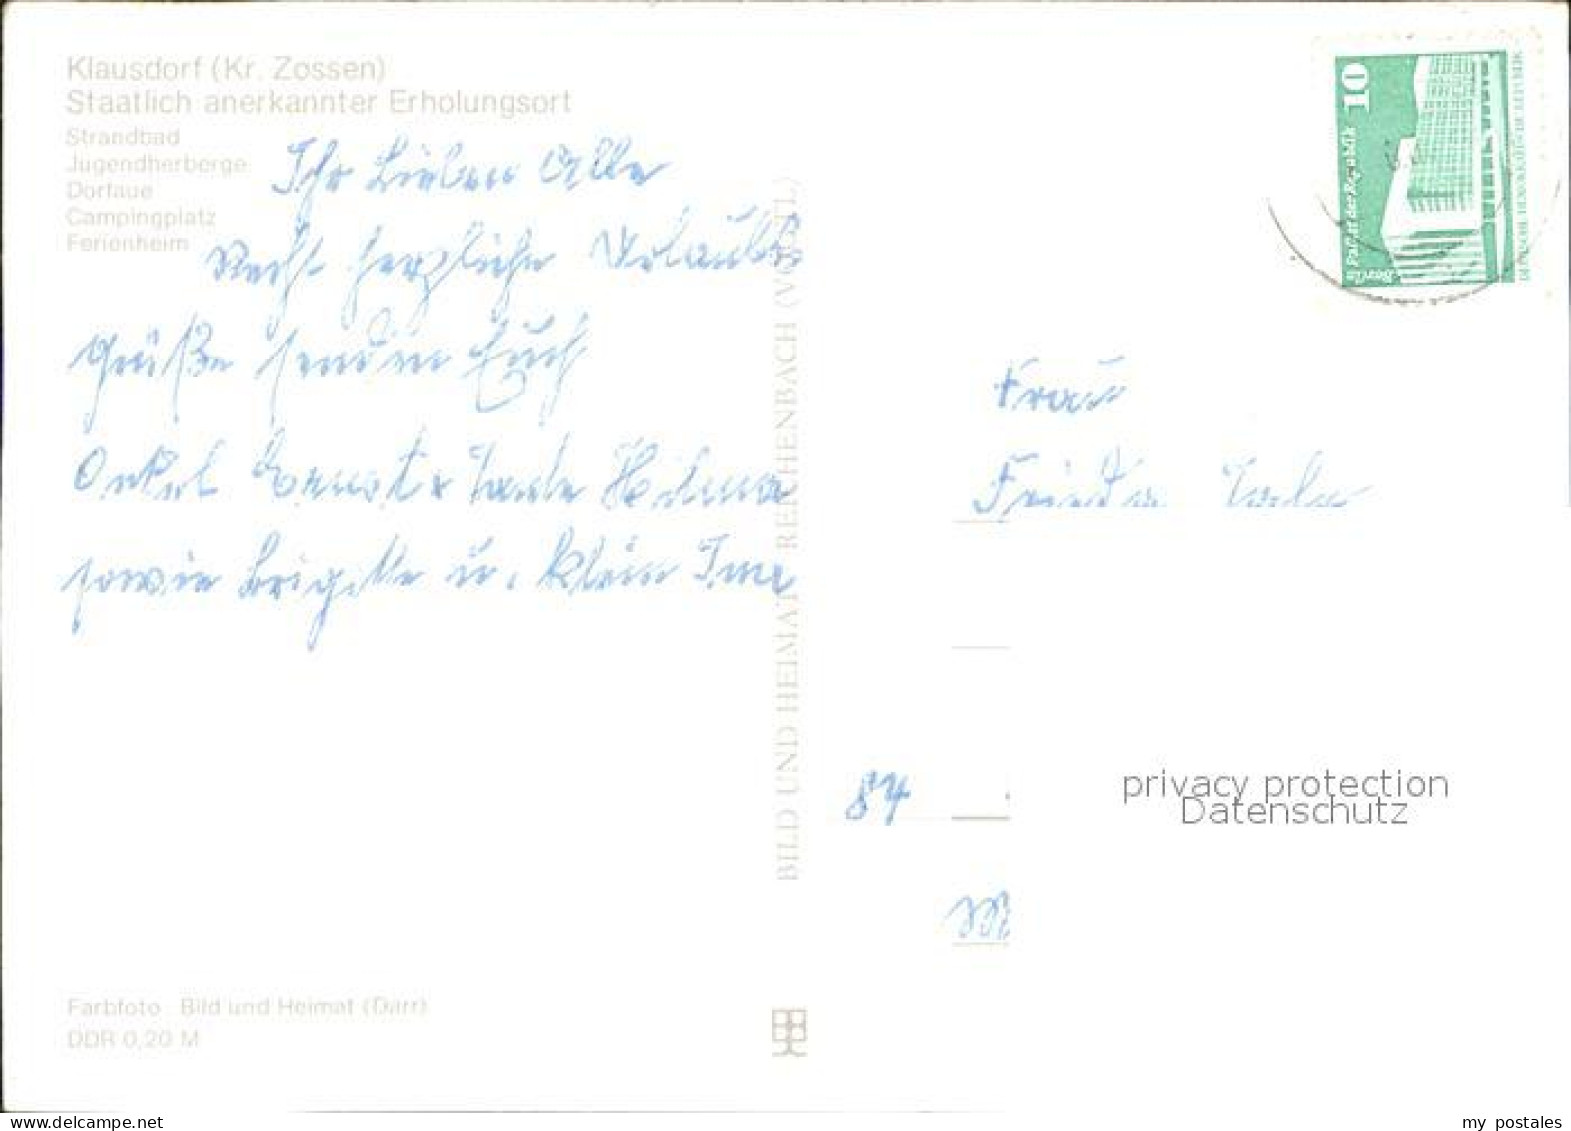 Klausdorf (Kr. Zossen)
Staatlich anerkannter Erholungsort
Strandbad
Jugendherberge
Dorfaue
Campingplatz
Ferienheim
Ihr Lieben Alle
Recht herzliche Urlaubs
Grüße senden Euch
Onkel Ernst + Tante Hilma
sowie Brigitte u. klein
BILD UND HEIMAT REICHENBACH (VOGTL)
Farbfoto: Bild und Heimat (Darr)
DDR 0,20 M
10
Palast der Republik
Berlin
DEUTSCHE DEMOKRATISCHE REPUBLIK
Frau
Frieda
84
privacy protection
Datenschutz
www.delcampe.net
my_postales